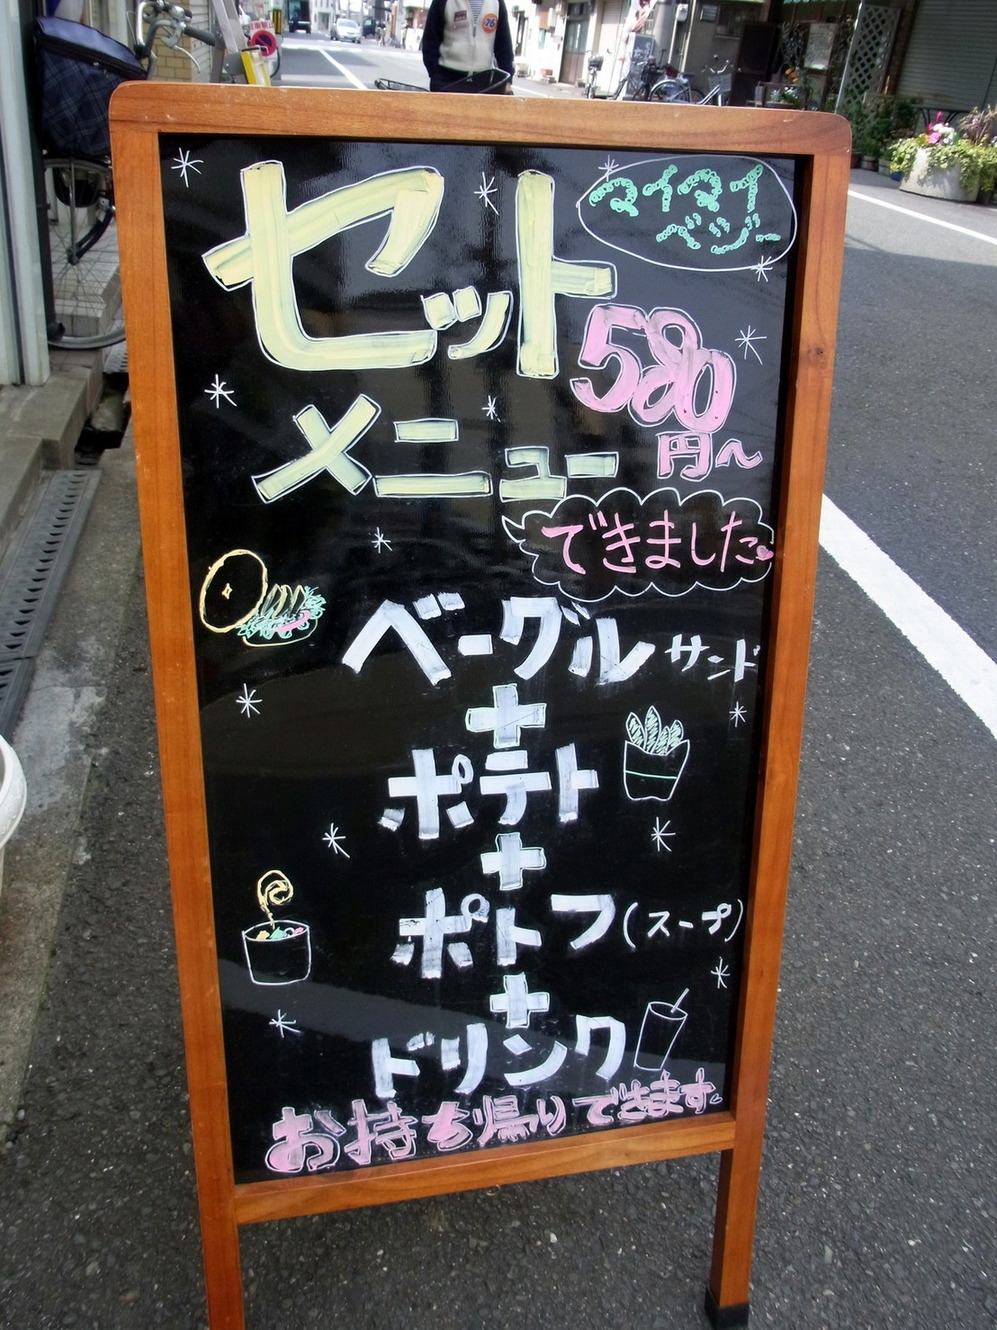 マイマイ
ベジー
セット
580
円～
メニュー
できました
ベーグル サンド
+
ポテト
+
ポトフ(スープ)
+
ドリンク
お持ち帰りできます。
76